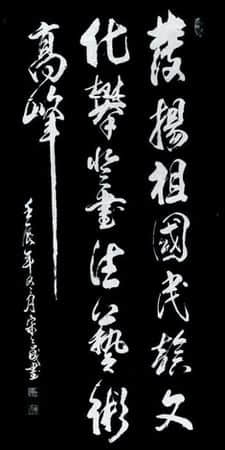 發揚祖國民族文
化攀登書法藝術
高峰
壬辰年九月宋之民書